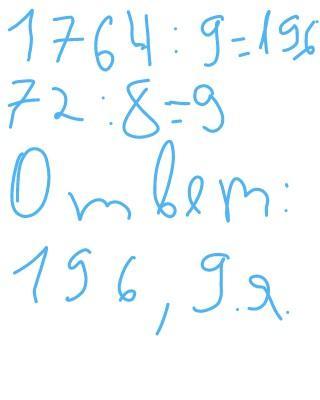 1764 : 9 = 196
72 : 8 = 9
Ответ:
196, 9.я.